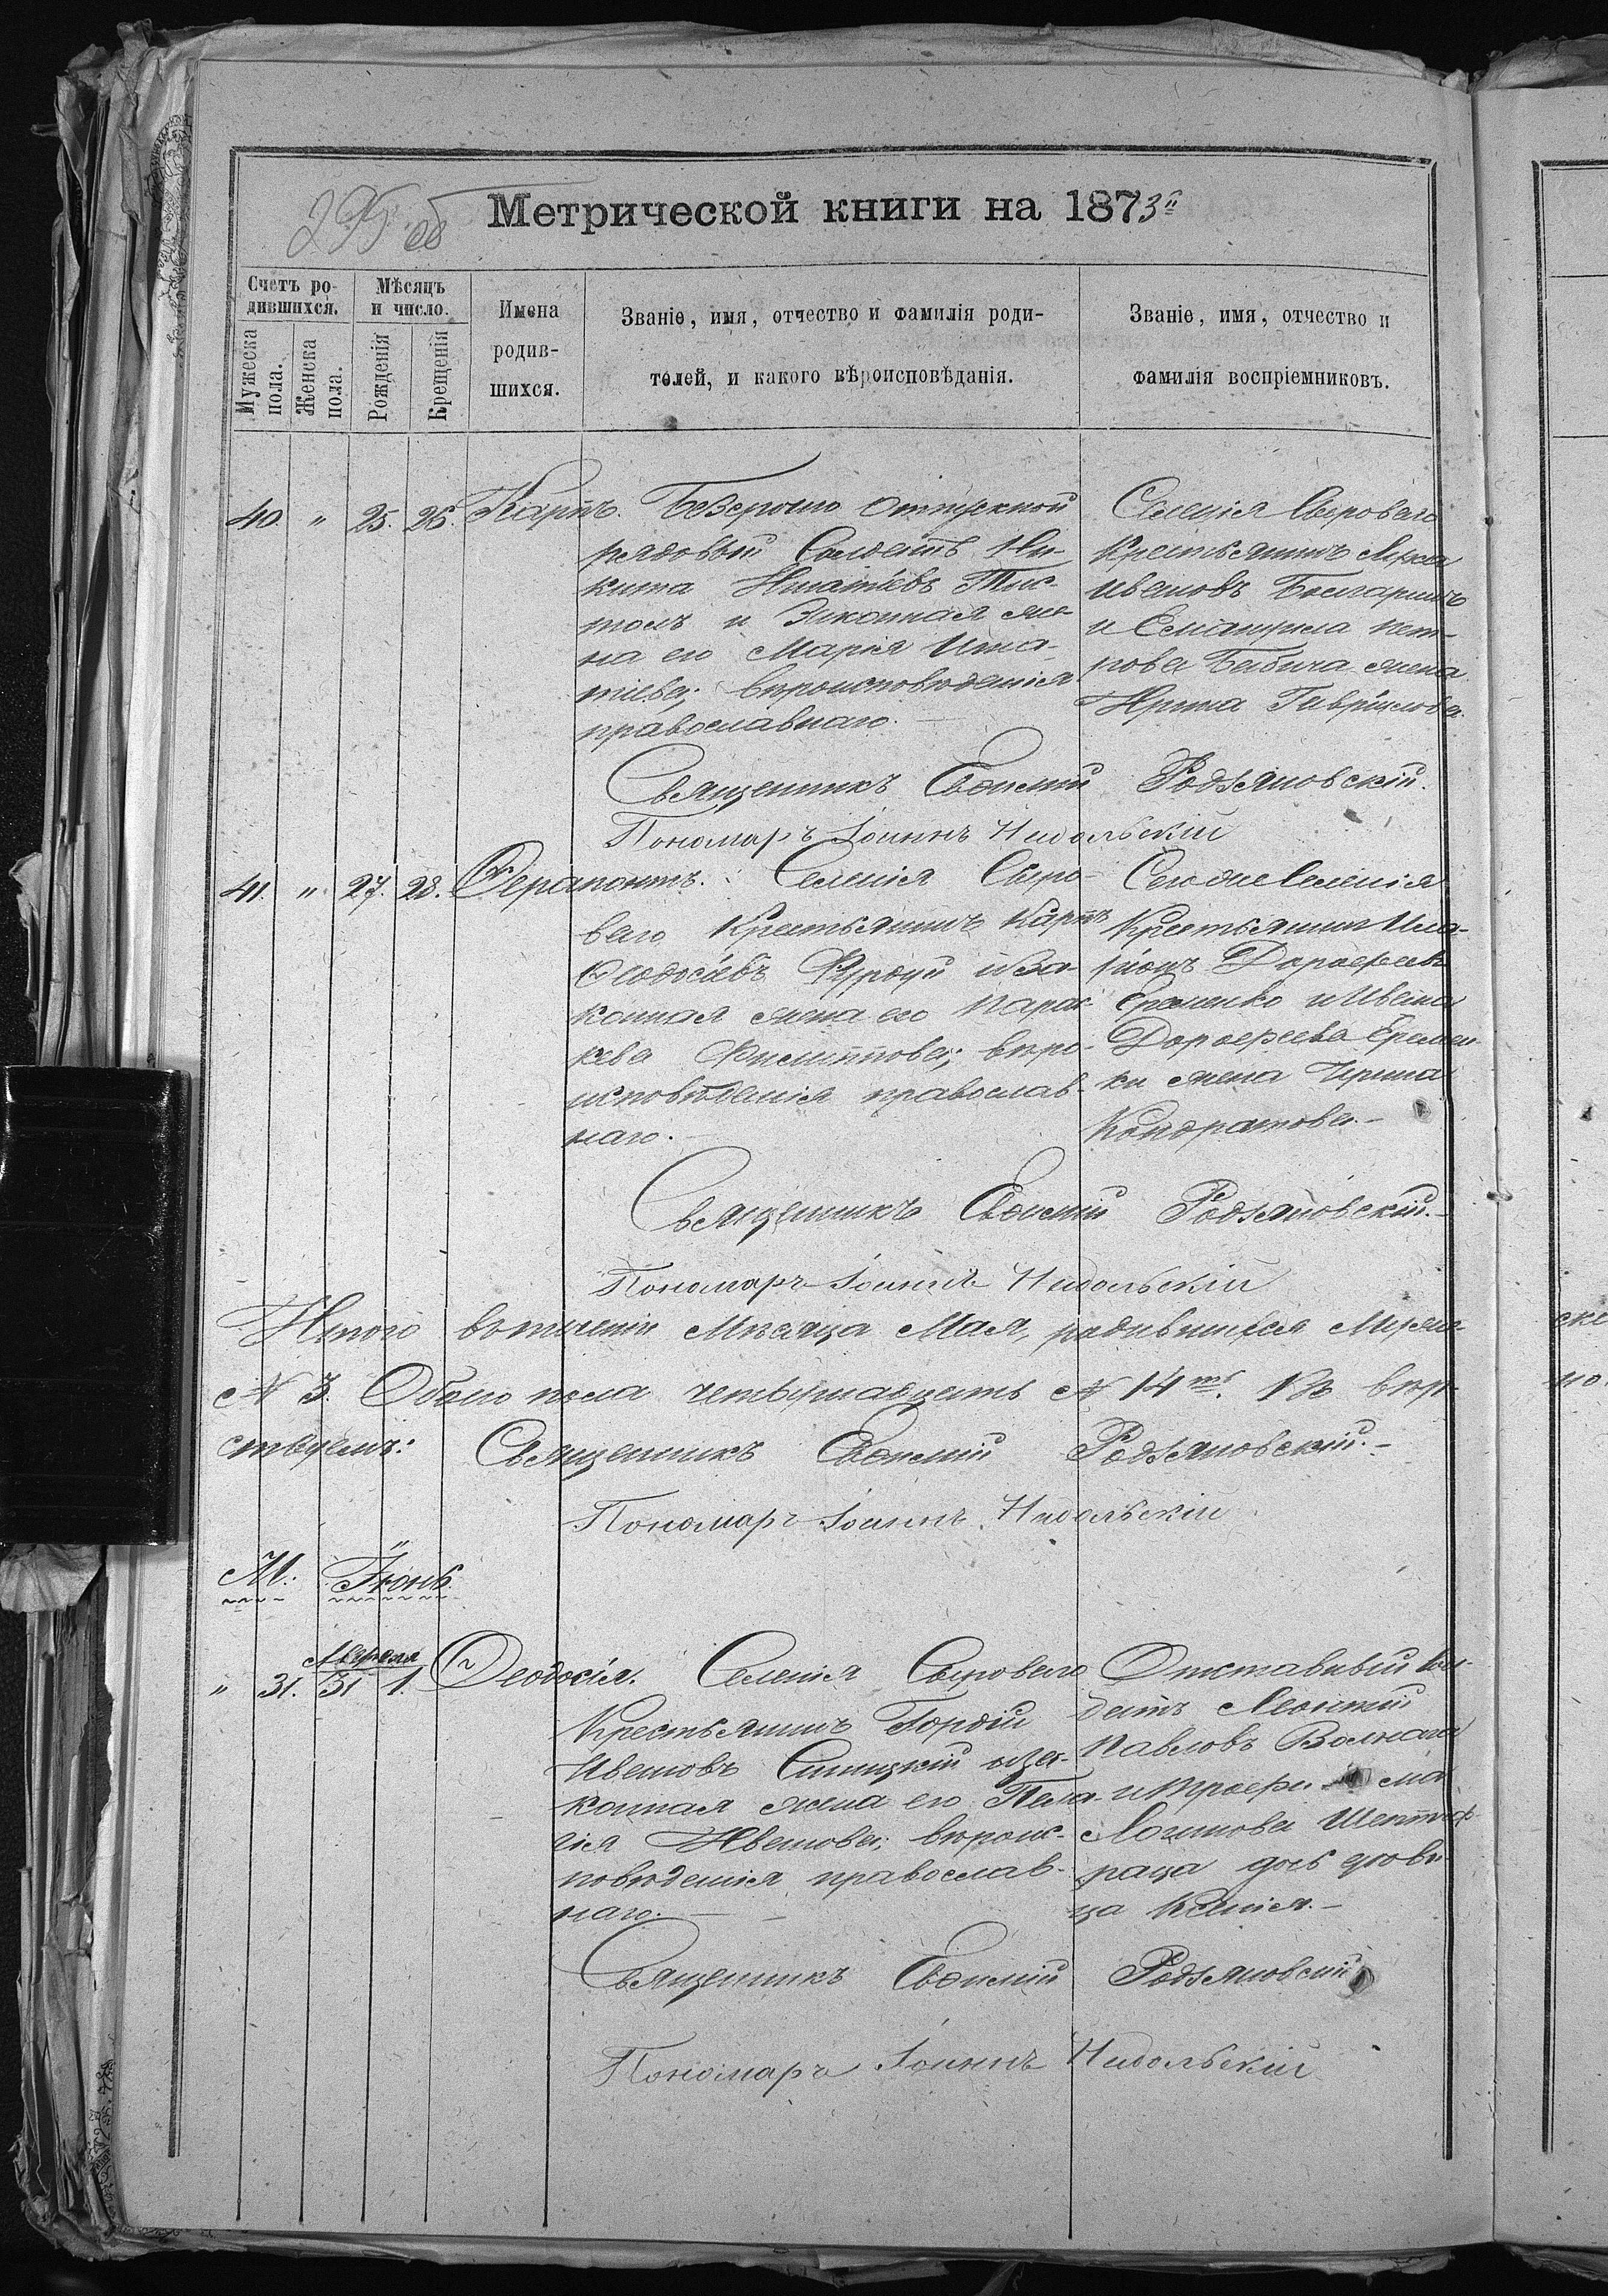 295 об
Метрической книги на 1873й
Счетъ ро-
дившихся.
Мужеска
пола.
Женска
пола.
Мѣсяцъ
и число.
Рожденія
Крещенія
Имена
родив-
шихся.
Званіе, имя, отчество и фамилія роди-
телей, и какого вѣроисповѣданія.
Званіе, имя, отчество и
фамилія воспріемниковъ.
40 " 25. 26. Карпъ.
Безсрочно Отпускной
рядовый Солдатъ Ни-
кита Игнатіевъ
и Законная же-
на его Марія Игна-
тіева; вѣроисповѣданія
православнаго.
Селенія Сырового
Крестьянинъ Лука
Ивановъ Болгаринъ
и пет-
рова Бабича жена
Ирина Гаврилова.
Священникъ Евѳимій Родзяновскій.
Пономаръ Іоаннъ Никольскій
41. " 27. 28. Ѳерапонтъ.
Селенія Сыро-
вого Крестьянинъ Карпъ
Ѳеодосіевъ и За-
конная жена его Парас-
кева Филиппова; вѣро-
исповѣданія православ-
наго.
Сегоже Селенія
Крестьянин Ила-
ріонъ Дороѳеевъ
Еременко и Ивана
Дороѳеева Еремен-
ки жена Ирина
Кондратова.
Священникъ Евѳимій Родзяновскій.
Пономаръ Іоаннъ Никольскій
Итого въ теченіи Мѣсяца Мая, родившихся Муже-
№ 3. Обоего пола четырнадцать № 14ть. Въ вѣр-
ствуемъ:
Священникъ Евѳимій Родзяновскій.
Пономаръ Іоаннъ Никольскій
М: Іюнь.
" 31. 31 1. Ѳеодосія.
Селенія Сырового
Крестьянинъ Гордій
Ивановъ Синицкій и за-
конная жена его Пела-
гія Иванова; вѣроис-
повѣданія православ-
наго.
Отставный Сол-
датъ Леонтій
Павловъ
и Трофи ма
Логинова
дочь дѣви-
ца Ксенія.
Священникъ Евѳимій Родзяновскій
Пономаръ Іоаннъ Никольскій